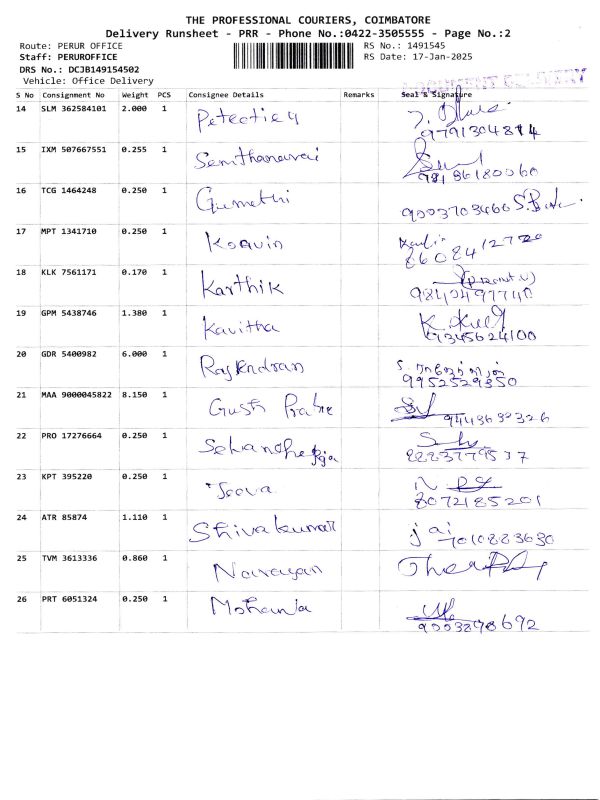 THE PROFESSIONAL COURIERS, COIMBATORE
Delivery Runsheet - PRR - Phone No.:0422-3505555 - Page No.:2
Route: PERUR OFFICE
RS No.: 1491545
Staff: PERUROFFICE
RS Date: 17-Jan-2025
DRS No.: DCJB149154502
Vehicle: Office Delivery
S No Consignment No Weight PCS Consignee Details Remarks Seal & Signature
14 SLM 362584101 2.000 1
9791304814
15 IXM 507667551 0.255 1
16 TCG 1464248 0.250 1 Gumethi 9003703466
17 MPT 1341710 0.250 1
8608412720
18 KLK 7561171 0.170 1 Karthik
19 GPM 5438746 1.380 1 Kavitha
9345624100
20 GDR 5400982 6.000 1 Rajendran
9952529350
21 MAA 9000045822 8.150 1
22 PRO 17276664 0.250 1
23 KPT 395220 0.250 1 Jeeva
8072185201
24 ATR 85874 1.110 1 Shivakumar
7010883630
25 TVM 3613336 0.860 1 Narayan
26 PRT 6051324 0.250 1
9003898692